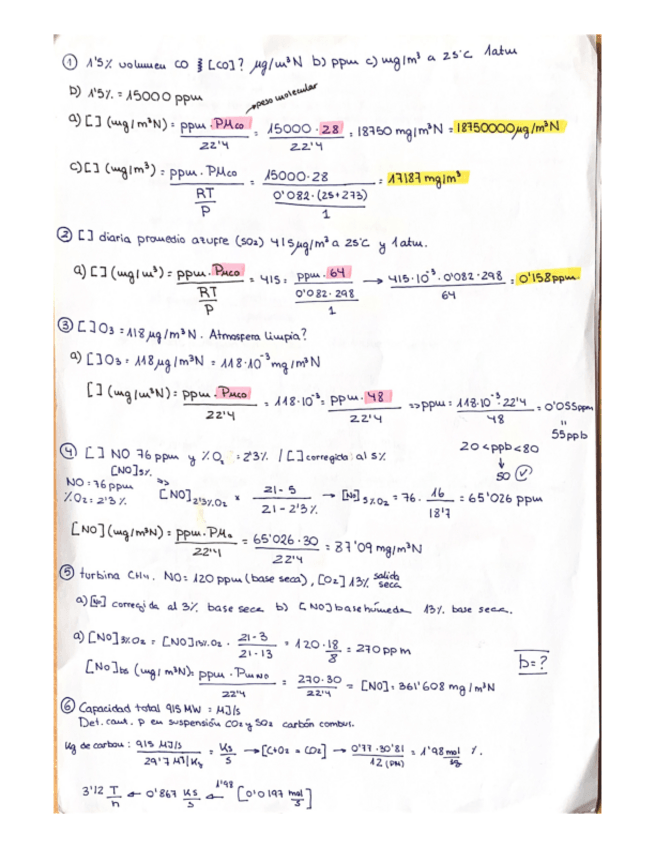 ① 1'5% volumen CO ¿[CO]? μg/m³N b) ppm c) mg/m³ a 25ºC 1atm
b) 1'5% = 15000 ppm
→ peso molecular
a) [ ] (mg/m³N) = ppm · PMco / 22'4 = 15000 · 28 / 22'4 = 18750 mg/m³N = 18750000 μg/m³N
c) [ ] (mg/m³) = ppm · PMco / (RT/P) = 15000 · 28 / (0'082 · (25+273) / 1) = 17187 mg/m³
② [ ] diaria promedio azufre (SO2) 415 μg/m³ a 25ºC y 1 atm.
a) [ ] (mg/m³) = ppm · PMCO / (RT/P) = 415 = ppm · 64 / (0'082 · 298 / 1) → 415·10⁻³ · 0'082 · 298 / 64 = 0'158 ppm
③ [ ] O3 = 118 μg/m³N. Atmosfera limpia?
a) [ ] O3 = 118 μg/m³N = 118·10⁻³ mg/m³N
[ ] (mg/m³N) = ppm · PMCO / 22'4 = 118·10⁻³ = ppm · 48 / 22'4 => ppm = 118·10⁻³ · 22'4 / 48 = 0'055 ppm
"
55 ppb
20 < ppb < 80
↓
50 ✓
④ [ ] NO 76 ppm y %O2 = 2'3% / [ ] corregida: al 5%
NO = 76 ppm
%O2 = 2'3 %
=> [NO]5% / [NO]2'3%O2 = 21 - 5 / 21 - 2'3% → [NO]5%O2 = 76 · 16 / 18'7 = 65'026 ppm
[NO] (mg/m³N) = ppm · PM / 22'4 = 65'026 · 30 / 22'4 = 87'09 mg/m³N
⑤ turbina CH4. NO = 120 ppm (base seca), [O2] 13% salida seca
a) [NO] corregida al 3% base seca b) [NO] base húmeda 13% base seca.
a) [NO]3%O2 = [NO]13%O2 · 21 - 3 / 21 - 13 = 120 · 18 / 8 = 270 ppm
b = ?
[NO]bs (mg/m³N) = ppm · PMNO / 22'4 = 270 · 30 / 22'4 = [NO] = 361'608 mg/m³N
⑥ Capacidad total 915 MW = MJ/s
Det. cant. P en suspensión CO2 y SO2 carbón combus.
Kg de carbon: 915 MJ/s / 29'7 MJ/Kg = Kg/s → [C+O2 = CO2] → 0'77 · 30'81 / 12 (PM) = 1'98 mol/sg %.
3'12 T/h ← 0'867 Kg/s ← 1'98 [0'0197 mol/s]